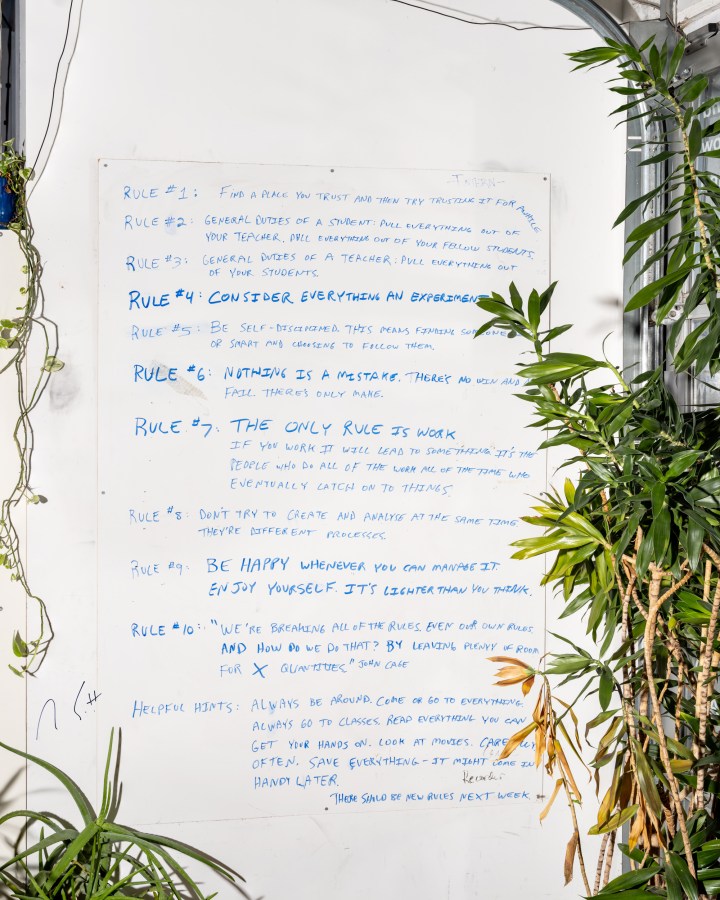 RULE #1: FIND A PLACE YOU TRUST AND THEN TRY TRUSTING IT FOR AWHILE
RULE #2: GENERAL DUTIES OF A STUDENT: PULL EVERYTHING OUT OF
YOUR TEACHER. PULL EVERYTHING OUT OF YOUR FELLOW STUDENTS.
RULE #3: GENERAL DUTIES OF A TEACHER: PULL EVERYTHING OUT
OF YOUR STUDENTS.
RULE #4: CONSIDER EVERYTHING AN EXPERIMENT
RULE #5: BE SELF-DISCIPLINED THIS MEANS FINDING SOMEONE
OR SMART AND CHOOSING TO FOLLOW THEM.
RULE #6: NOTHING IS A MISTAKE. THERE'S NO WIN AND
FAIL THERE'S ONLY MAKE.
RULE #7: THE ONLY RULE IS WORK
IF YOU WORK IT WILL LEAD TO SOMETHING IT'S THE
PEOPLE WHO DO ALL OF THE WORK ALL OF THE TIME WHO
EVENTUALLY LATCH ON TO THINGS.
RULE #8: DON'T TRY TO CREATE AND ANALYSE AT THE SAME TIME
THEY'RE DIFFERENT PROCESSES.
RULE #9: BE HAPPY WHENEVER YOU CAN MANAGE IT.
ENJOY YOURSELF. IT'S LIGHTER THAN YOU THINK.
RULE #10: "WE'RE BREAKING ALL OF THE RULES. EVEN OUR OWN RULES
AND HOW DO WE DO THAT? BY LEAVING PLENTY OF ROOM
FOR X QUANTITIES." JOHN CAGE
HELPFUL HINTS: ALWAYS BE AROUND. COME OR GO TO EVERYTHING.
ALWAYS GO TO CLASSES. READ EVERYTHING YOU CAN
GET YOUR HANDS ON. LOOK AT MOVIES. CAREFULLY
OFTEN. SAVE EVERYTHING - IT MIGHT COME IN
HANDY LATER.
THERE SHOULD BE NEW RULES NEXT WEEK.